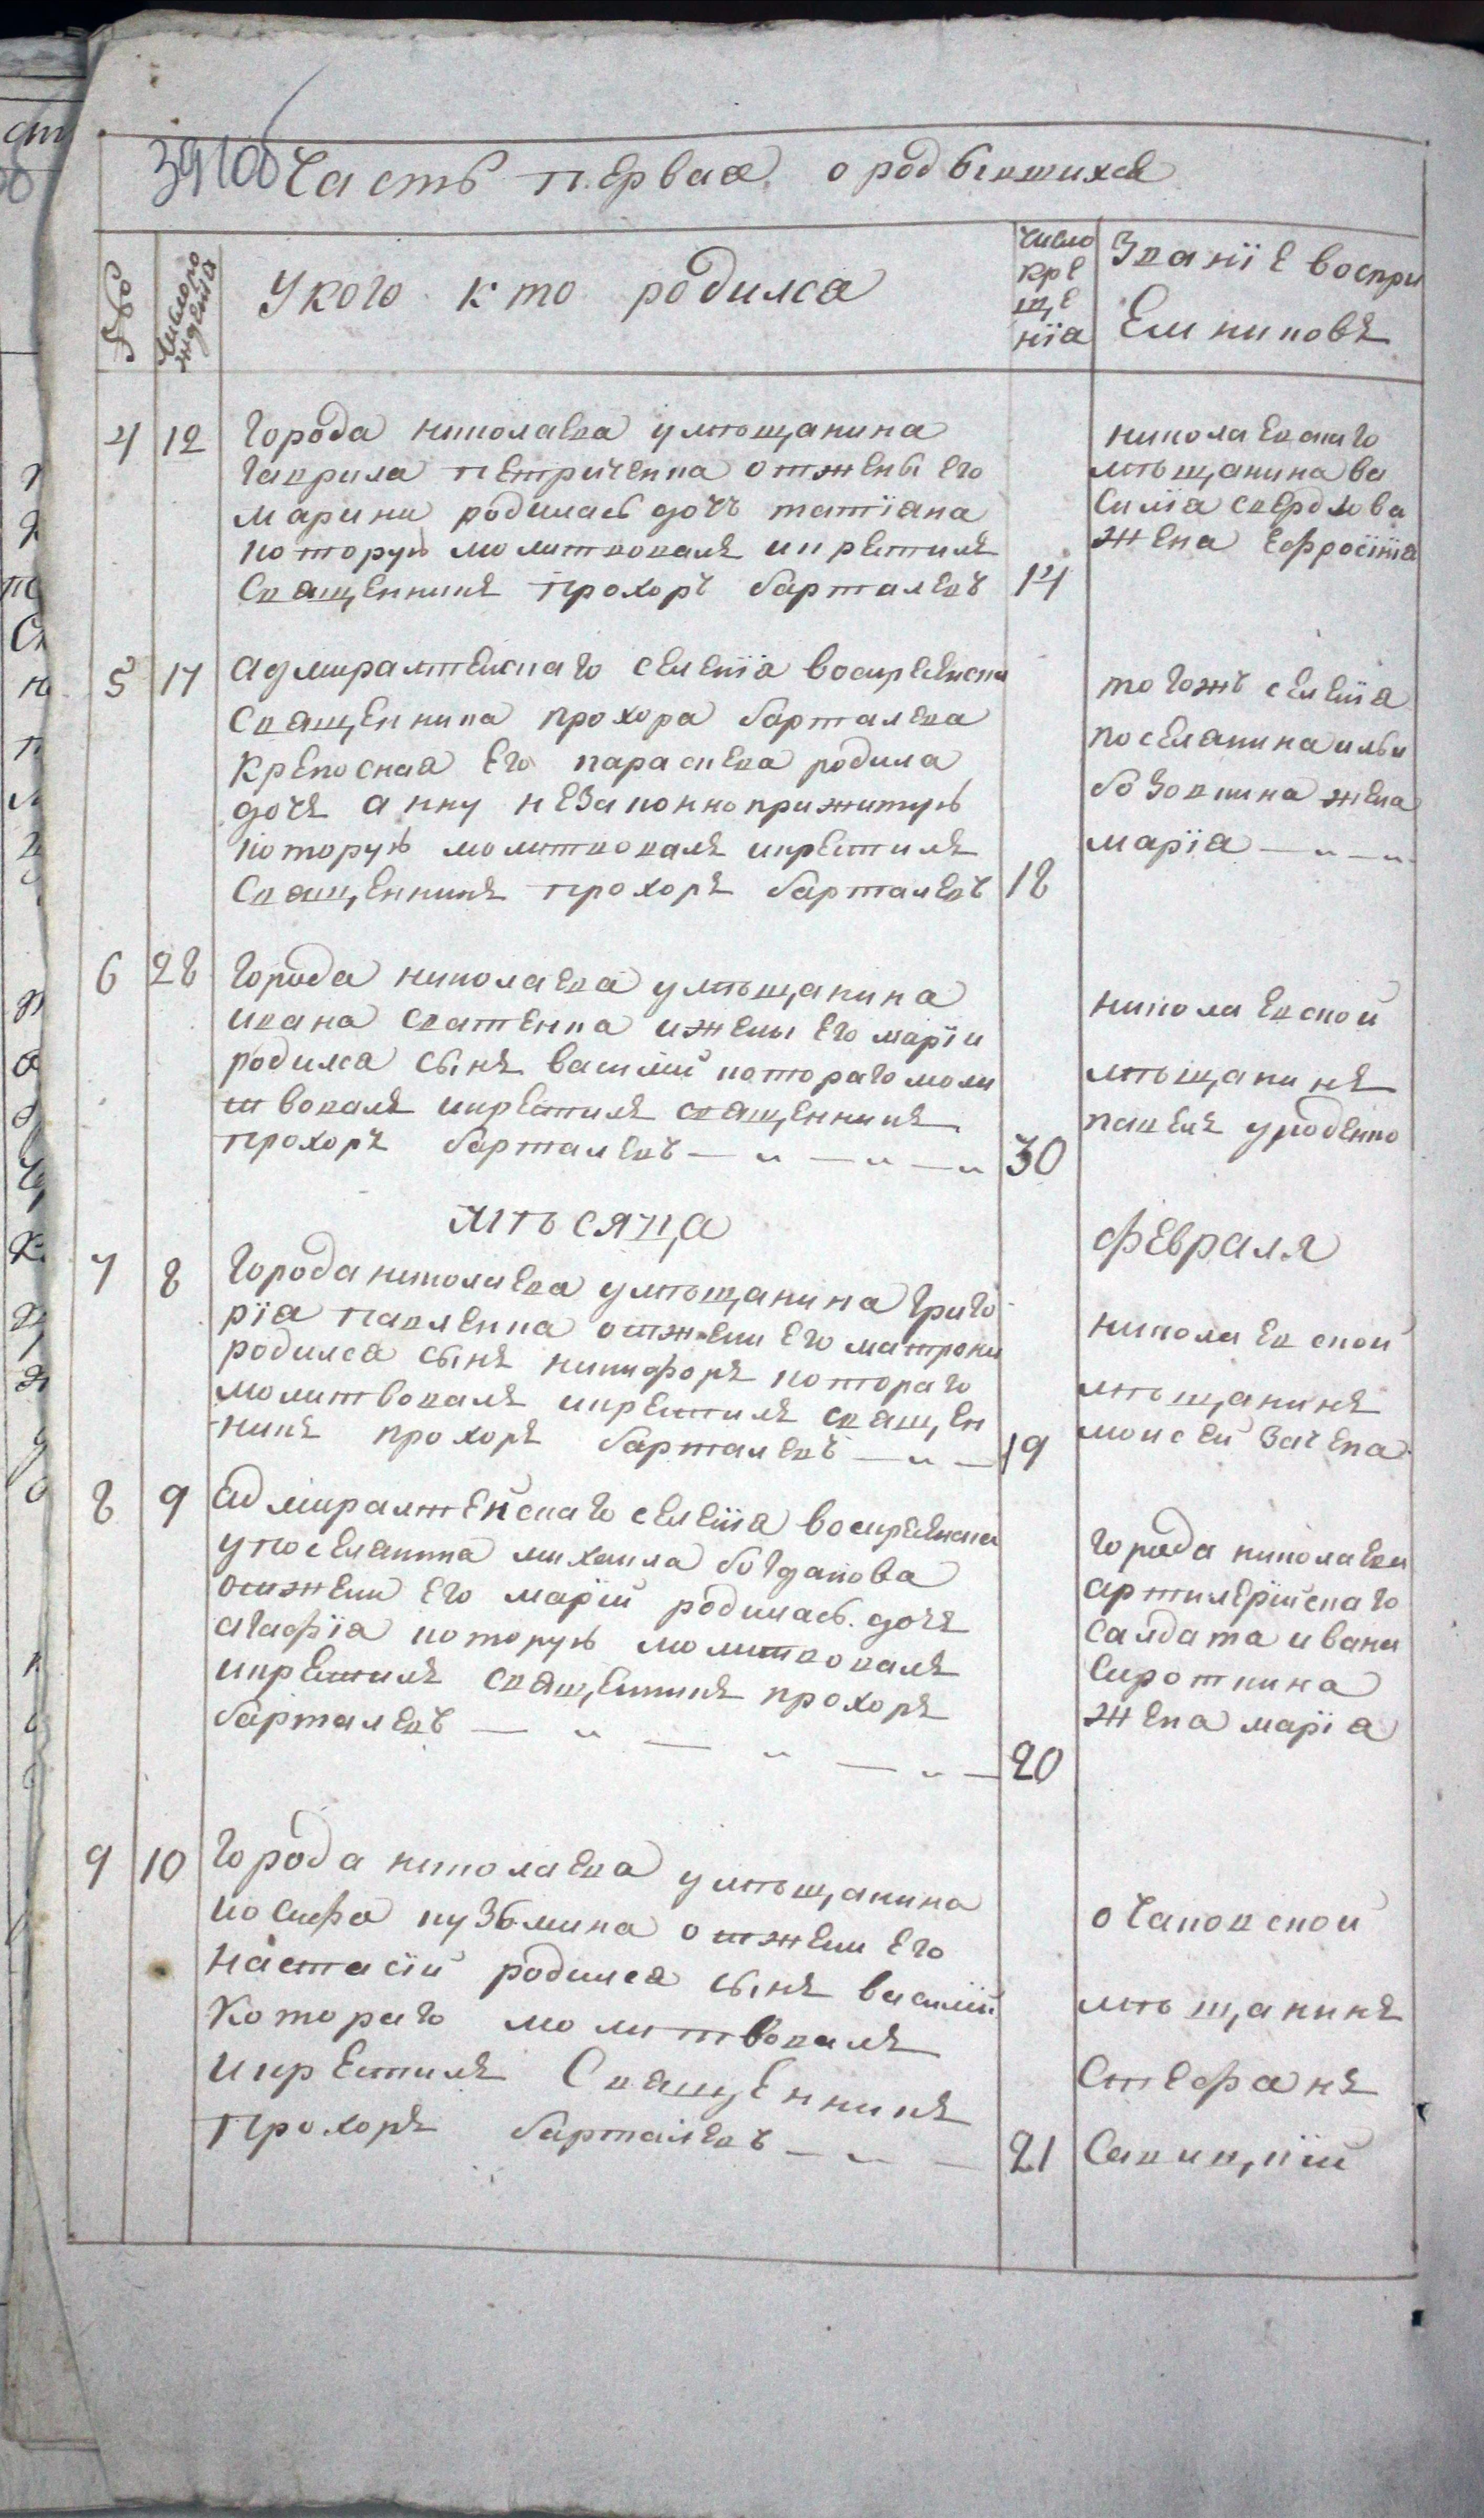 39 об
Часть первая о родившихся
Счоть
Число рождения
У кого кто родился
Число
кре
ще
нїя
Званїе воспри
емниковъ
4 12 города николаева умѣщанина
гаврила петриченка отжены его
марини родилась дочъ татїана
которую молитвовалъ икрестилъ
священникъ прохоръ барталевъ
14
николаевскаго
мѣщанина ва
силїя свердлова
жена ефросїнїя
5 17 адмиралтейскаго селенїя воскресенска
священника прохора барталева
крепосная его параскева родила
дочъ анну незаконноприжитую
которую молитвовалъ икрестилъ
священникъ прохоръ барталевъ
18
тогожъ селенїя
поселянина ильи
бозовкина жена
марїя
6 28 города николаева умѣщанина
ивана сватенка ижены его марїи
родился сынъ василїй котораго моли
твовалъ икрестилъ священникъ
прохоръ барталевъ
30
николаевской
мѣщанинъ
павелъ уроденко
мѣсяца
февраля
7 8 города николаева умѣщанина григо
рїя павленка отжени его матрони
родился сынъ никифоръ котораго
молитвовалъ икрестилъ священ
никъ прохоръ барталевъ
19
николаевской
мѣщанинъ
моисей зачепа
8 9 адмиралтейскаго селенїя воскресенска
упоселянина михаила богданова
отжени его марїи родилась дочъ
агафїя которую молитвовалъ
икрестилъ священникъ прохоръ
барталевъ
20
города николаева
артилерїйскаго
салдата ивана
сироткина
жена марїя
9 10 города николаева умѣщанина
иосифа кузьмина отжени его
настасїи родился сынъ василїй
котораго молитвовалъ
икрестилъ священникъ
прохоръ барталевъ
21
очаковской
мѣщанинъ
стефанъ
савицкїй